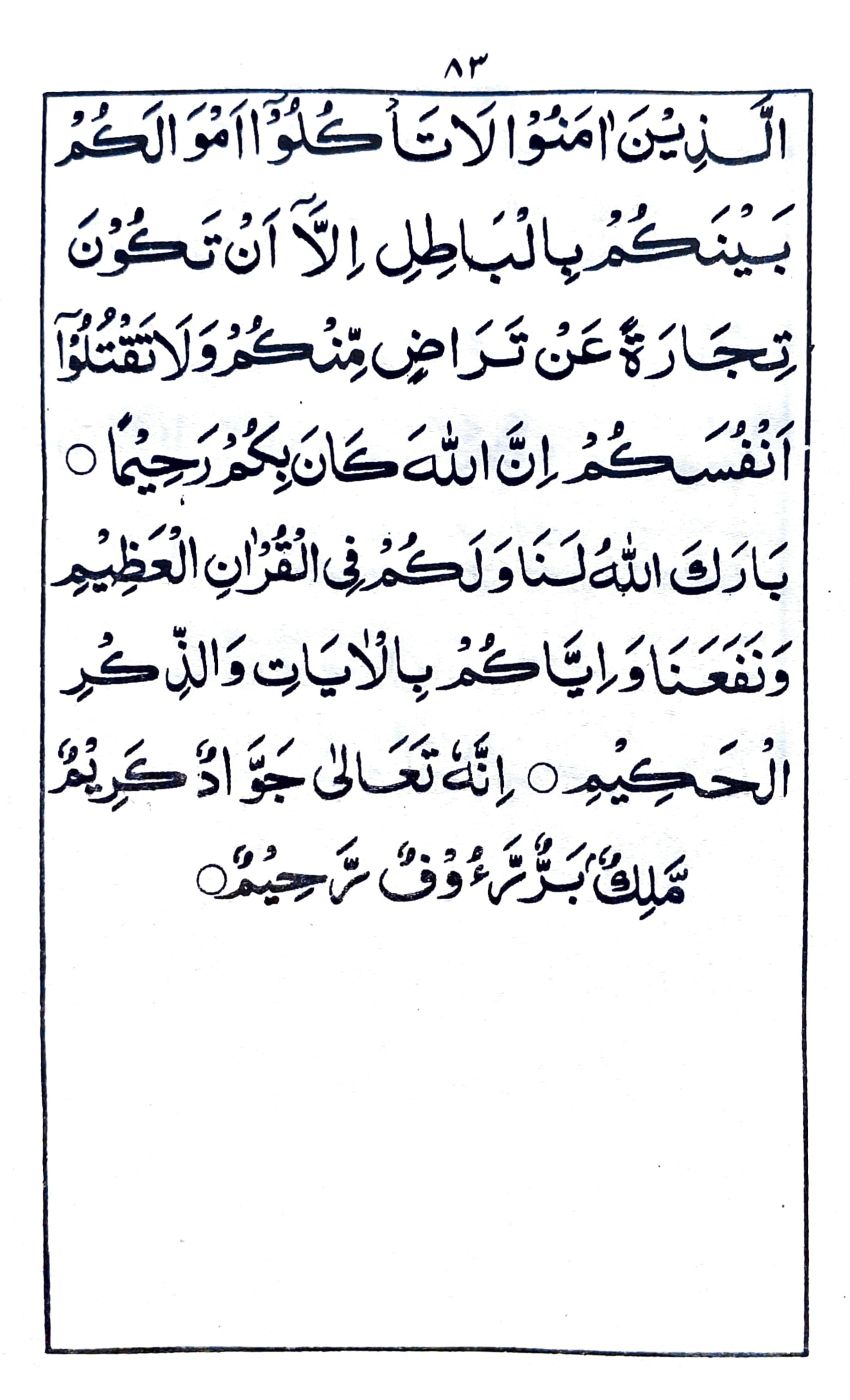 ٨٣
الَّذِيْنَ اٰمَنُوْا لَا تَاْكُلُوْٓا اَمْوَالَكُمْ
بَيْنَكُمْ بِالْبَاطِلِ اِلَّآ اَنْ تَكُوْنَ
تِجَارَةً عَنْ تَرَاضٍ مِّنْكُمْ وَلَا تَقْتُلُوْٓا
اَنْفُسَكُمْ اِنَّ اللّٰهَ كَانَ بِكُمْ رَحِيْمًا ○
بَارَكَ اللّٰهُ لَنَا وَلَكُمْ فِى الْقُرْاٰنِ الْعَظِيْمِ
وَنَفَعَنَا وَاِيَّاكُمْ بِالْاٰيَاتِ وَالذِّكْرِ
الْحَكِيْمِ ○ اِنَّهٗ تَعَالٰى جَوَّادٌ كَرِيْمٌ
مَّلِكٌ بَرٌّ رَّءُوْفٌ رَّحِيْمٌ ○